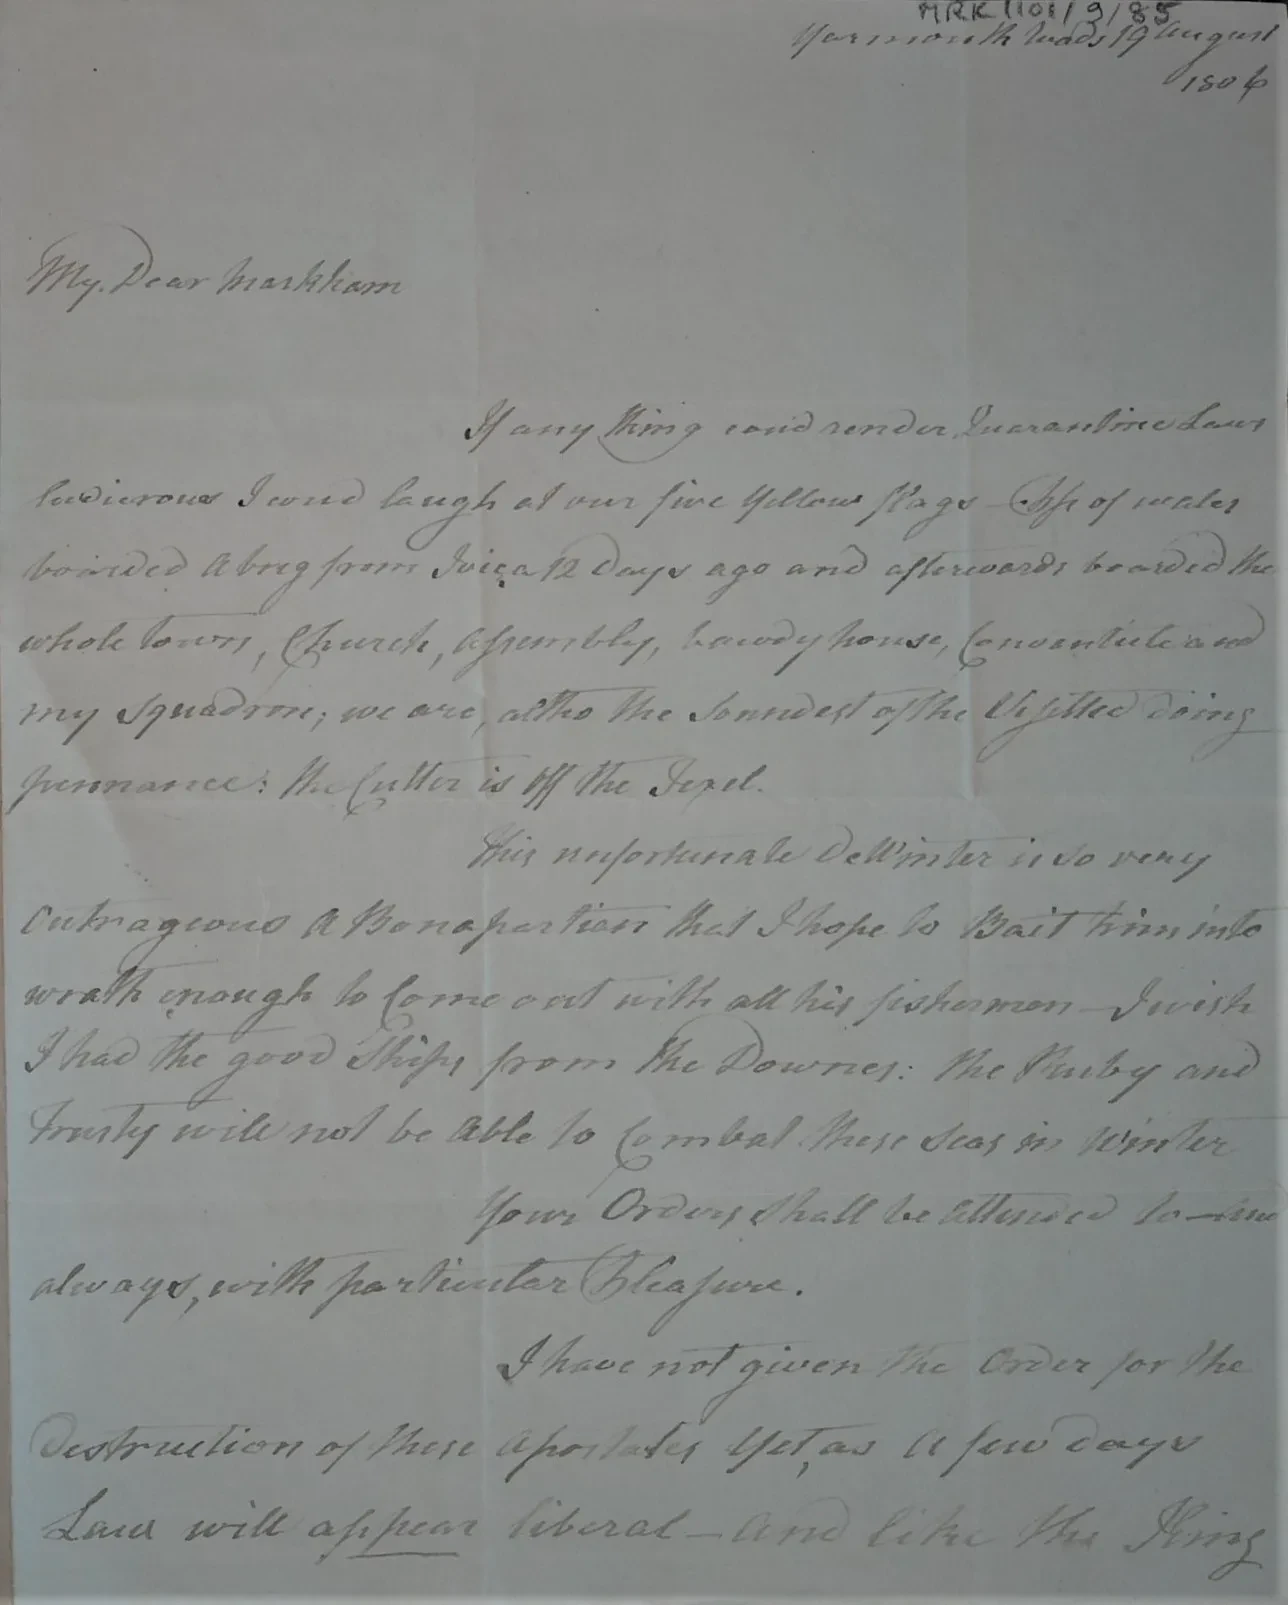 MRK/101/9/85
Yarmouth Roads 19 August
1806
My Dear Markham
If any thing coud render Quarantine Laws
ludicrous I woud laugh at our five Yellow flags - of wales
boarded A brig from Ivica 12 Days ago and afterwards boarded the
whole town, Church, Assembly, bawdy house, Conventicle and
my squadron; we are, altho the soundest of the Visitted doing
pennance: the Cutter is off the Texel.
This unfortunate DeWinter is so very
Outrageous A Bonapartian that I hope to Bait him into
wrath enough to Come out with all his fishermen - I wish
I had the good Ships from the Downes: the Ruby and
Trusty will not be Able to Combat these Seas in Winter
Your Orders shall be Attended to -
always, with particular Pleasure.
I have not given the Order for the
Destruction of these Apostates Yet, as A few days
Law will appear liberal - and like the King